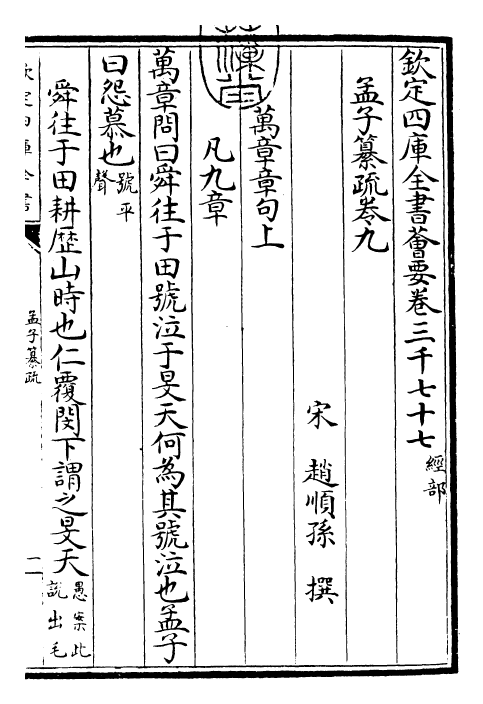 欽定四庫全書薈要卷三千七十七 經部
孟子纂疏卷九
宋 趙順孫 撰
萬章章句上
凡九章
萬章問曰舜往于田號泣于旻天何為其號泣也孟子
曰怨慕也 號平聲
舜往于田耕歷山時也仁覆閔下謂之旻天 愚案此說出毛
欽定四庫全書
孟子纂疏
一